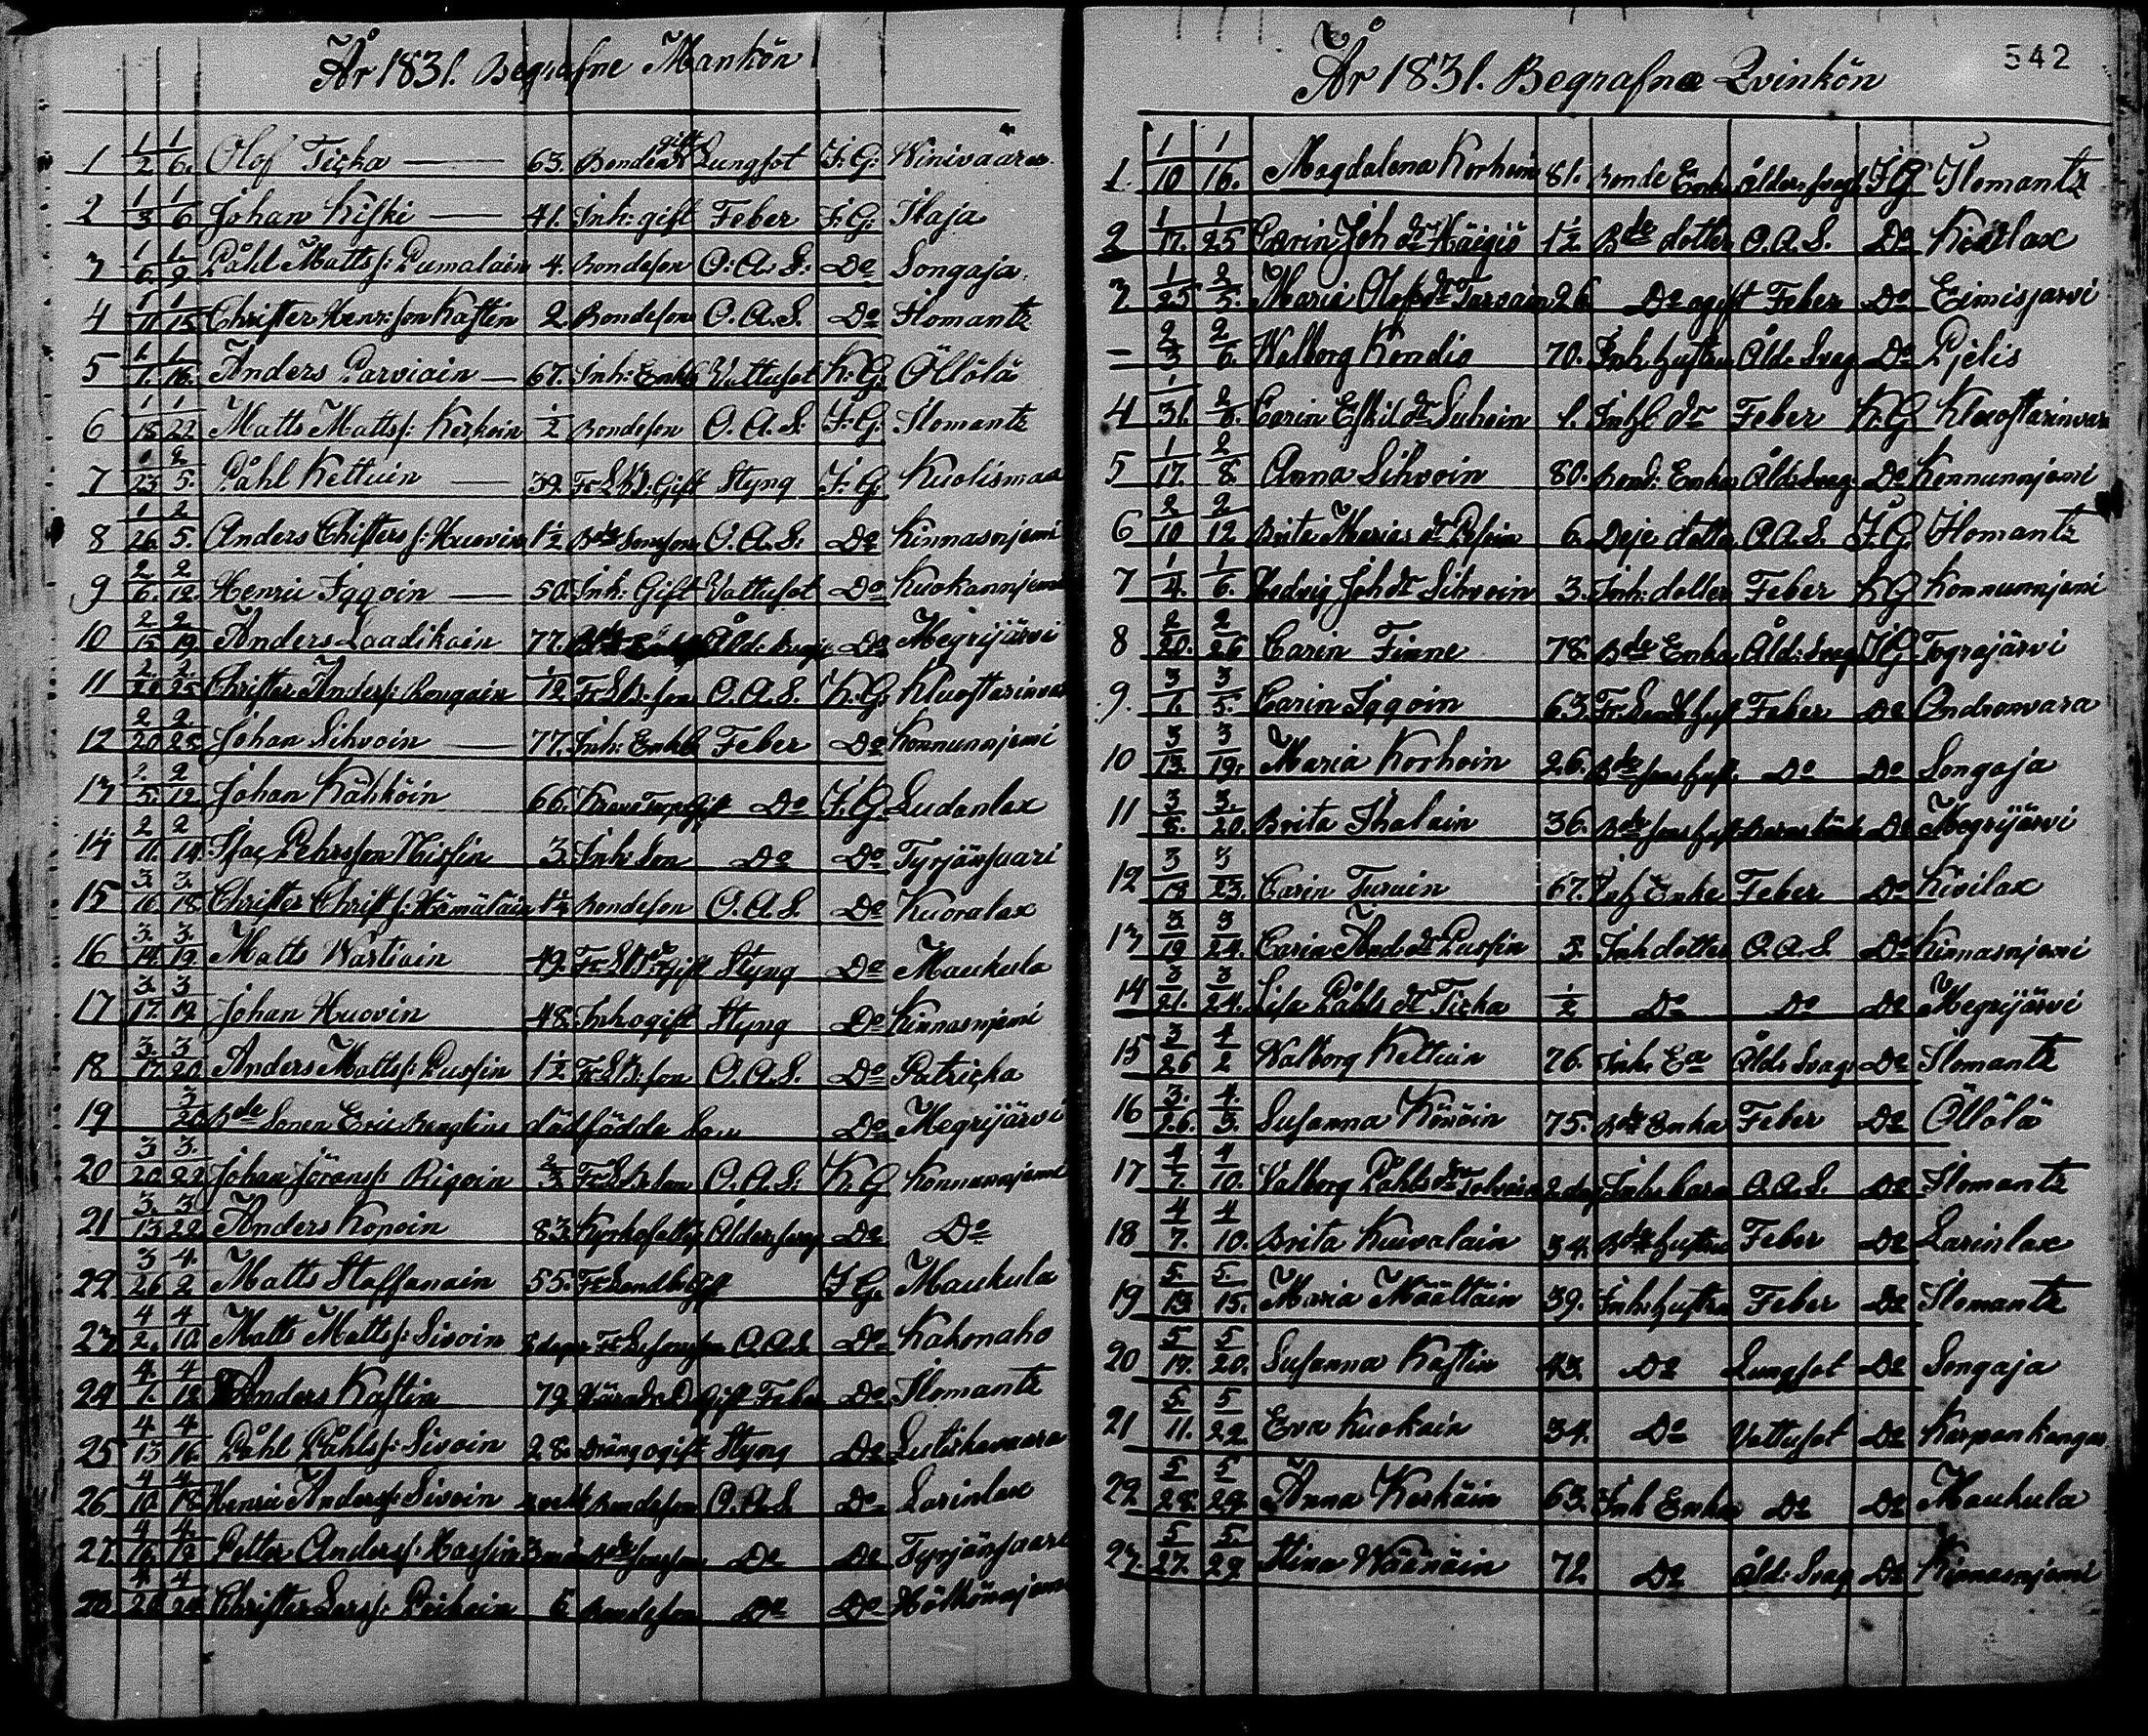 År 1831. Begrafne Mankön
1 1/2 1/6. Olof Ticka — 63. Bonde gift Lungsot F. G: Winivaara
2 1/3 1/6 Johan Kiski — 41. Inh: gift Feber F: G: Ilaja
3 1/6. 1/9 Påhl Matts s: Pumalain 4. Bondeson O: A. S: Do Songaja
4 1/11 1/15 Christer Henr: son Kastin 2. Bondeson O. A. S. Do Ilomantz
5 1/1. 1/16. Anders Parviain — 67. Inh: Enkl Vattusot K: G: Öllölä
6 1/18 1/22 Matts Matts s: Kerhoin 1/2 Bondeson O. A. S: F: G. Ilomantz
7 1/23 2/5. Påhl Kettuin — 39. Fr S B: Gift Styng F: G. Kuolismaa
8 1/26. 2/5. Anders Christers s: Huovin 1 1/2 Bde Sonson O. A. S. Do Kinnasnjemi
9 2/6. 2/12. Henric Iqqoin — 50. Inh: Gift Vattusot Do Kuokannjemi
10 2/15 2/19 Anders Laadikain 77. Åld: Do Megrijärvi
11 2/25 Christer Anders s: 1/12 Fr S B: son O. A. S. K. G. Kluostarinvar
12 2/20 2/25 Johan Sihvoin — 77. Inh: Enkl Feber Do Konnunnjemi
13 2/5. 2/12. Johan Kähköin 66. Gift Do F. G. Ludanlax
14 2/11. 2/14 Isac Pehrsson Nissin 3. Inh: Son Do Do Tyrjänsaari
15 3/16 3/18. Christer Christ s: Hämäläin 1/4 Bondeson O. A. S. Do Kuoralax
16 3/14 3/19 Matts Wartiain 49. Fr S B: Gift Styng Do Maukula
17 3/17. 3/19 Johan Huovin 48. Inh ogift Styng Do Kinnasnjemi
18 3/17 3/20 Anders Matts s: Pussin 1 1/2 Fr S B: son O. A. S. Do Patricka
19 3/20 Bde Sonen Eric dödfödde Son Do Megrijärvi
20 3/20 3/22 Johan Jörans s: Rigoin 2/3 Fr S B. son O. A. S: K. G Konnunnjemi
21 3/13 3/22 Anders Kopoin 83. Ålders svag Do Do
22 3/26 4/2 Matts Staffanain 55. Fr Landb Gift F G. Maukula
23 4/2. 4/10 Matts Matts s: Sivoin O. A. S Do Kakonaho
24 4/1. 4/12 Anders Kastin 79 Gift Feber Do Ilomantz
25 4/13 4/16. Påhl Påhls s: Sivoin 28. Dräng ogift Styng Do Lutikavaara
26 4/10 4/18 Henric Anders s: Sivoin Bondeson O. A. S Do Larinlax
27 4/16 4/19 Petter Anders s: Hassin 3 mån Bde sonson Do Do Tyrjänsaari
28 4/20 Christer Lars s: Poikoin Bondeson Do Do Hölkönnjemi
542
År 1831. Begrafne Qvinkön
1. 1/10 1/16. Magdalena Korhoin 81. Bonde Enka Ålders svag F G Ilomantz
2 1/17. 1/25 Carin Joh dr Häigiö 1 1/2 Bde dotter O. A. S. Do Kivilax
3 1/25 2/5. Maria Olofs dr Tarvain 26. Do ogift Feber Do Eimisjärvi
– 2/3 2/6. Walborg Kondia 70. Inh. hustru Åld: Svag Do Pjelis
4 1/31. 2/6. Carin Eskil dr Suhoin 1. Inh: dr Feber K. G Kluostarinvara
5 1/17. 2/8. Anna Sihvoin 80. Bond: Enka Åld: Svag Do Konnunnjemi
6 2/10 2/12 Brita Marias dr Pesoin 6. Deje dotter O. A. S. F. G. Ilomantz
7 1/4. 1/6. Hedvig Joh dr Sihvoin 3. Inh: dotter Feber K G Konnunnjemi
8 2/20. 2/26 Carin Finne 78. Bde Enka Åld: Svag F G Tograjärvi
9. 3/1. 3/5. Carin Iqqoin 63. Fr: Landb hust Feber Do Ondronvara
10 3/13. 3/19. Maria Korhoin 26. Bde sons hust. Do Do Songaja
11 3/8. 3/20. Brita Ihalain 36. Bde sons hust Barnsbörd Do Megrijärvi
12 3/18 3/23. Carin Turuin 67. Inh Enka Feber Do Kivilax
13 3/19 3/24. Carin And: dr Pussin 5. Inh dotter O. A. S. Do Kinnasnjemi
14 3/21. 3/24. Lisa Påhls dr Ticka 1/2 Do Do Do Megrijärvi
15 3/26 4/2 Walborg Kettuin 76. Inh: Ea Åld: Svag Do Ilomantz
16 3/26. 4/3. Susanna Könöin 75. Bde Enka Feber Do Öllölä
17 4/7. 4/10. Valborg Påhls dr Tolvain 2 dag Inh: barn O. A. S. Do Ilomantz
18 4/7. 4/10. Brita Kuivalain 34. Bde hustru Feber Do Larinlax
19 5/13 5/15. Maria Määttäin 39. Inh: hustru Feber Do Ilomantz
20 5/17. 5/20. Susanna Kastin 43. Do Lungsot Do Songaja
21 5/11. 5/22 Eva Kuokain 34. Do Vattusot Do Korpenkangas
22 5/28. 5/29. Anna Kerhoin 63. Inh Enka Do Do Maukula
23 5/27. 5/29 Stina Wäänäin 72 Do Åld: Svag Do Kinnasnjemi